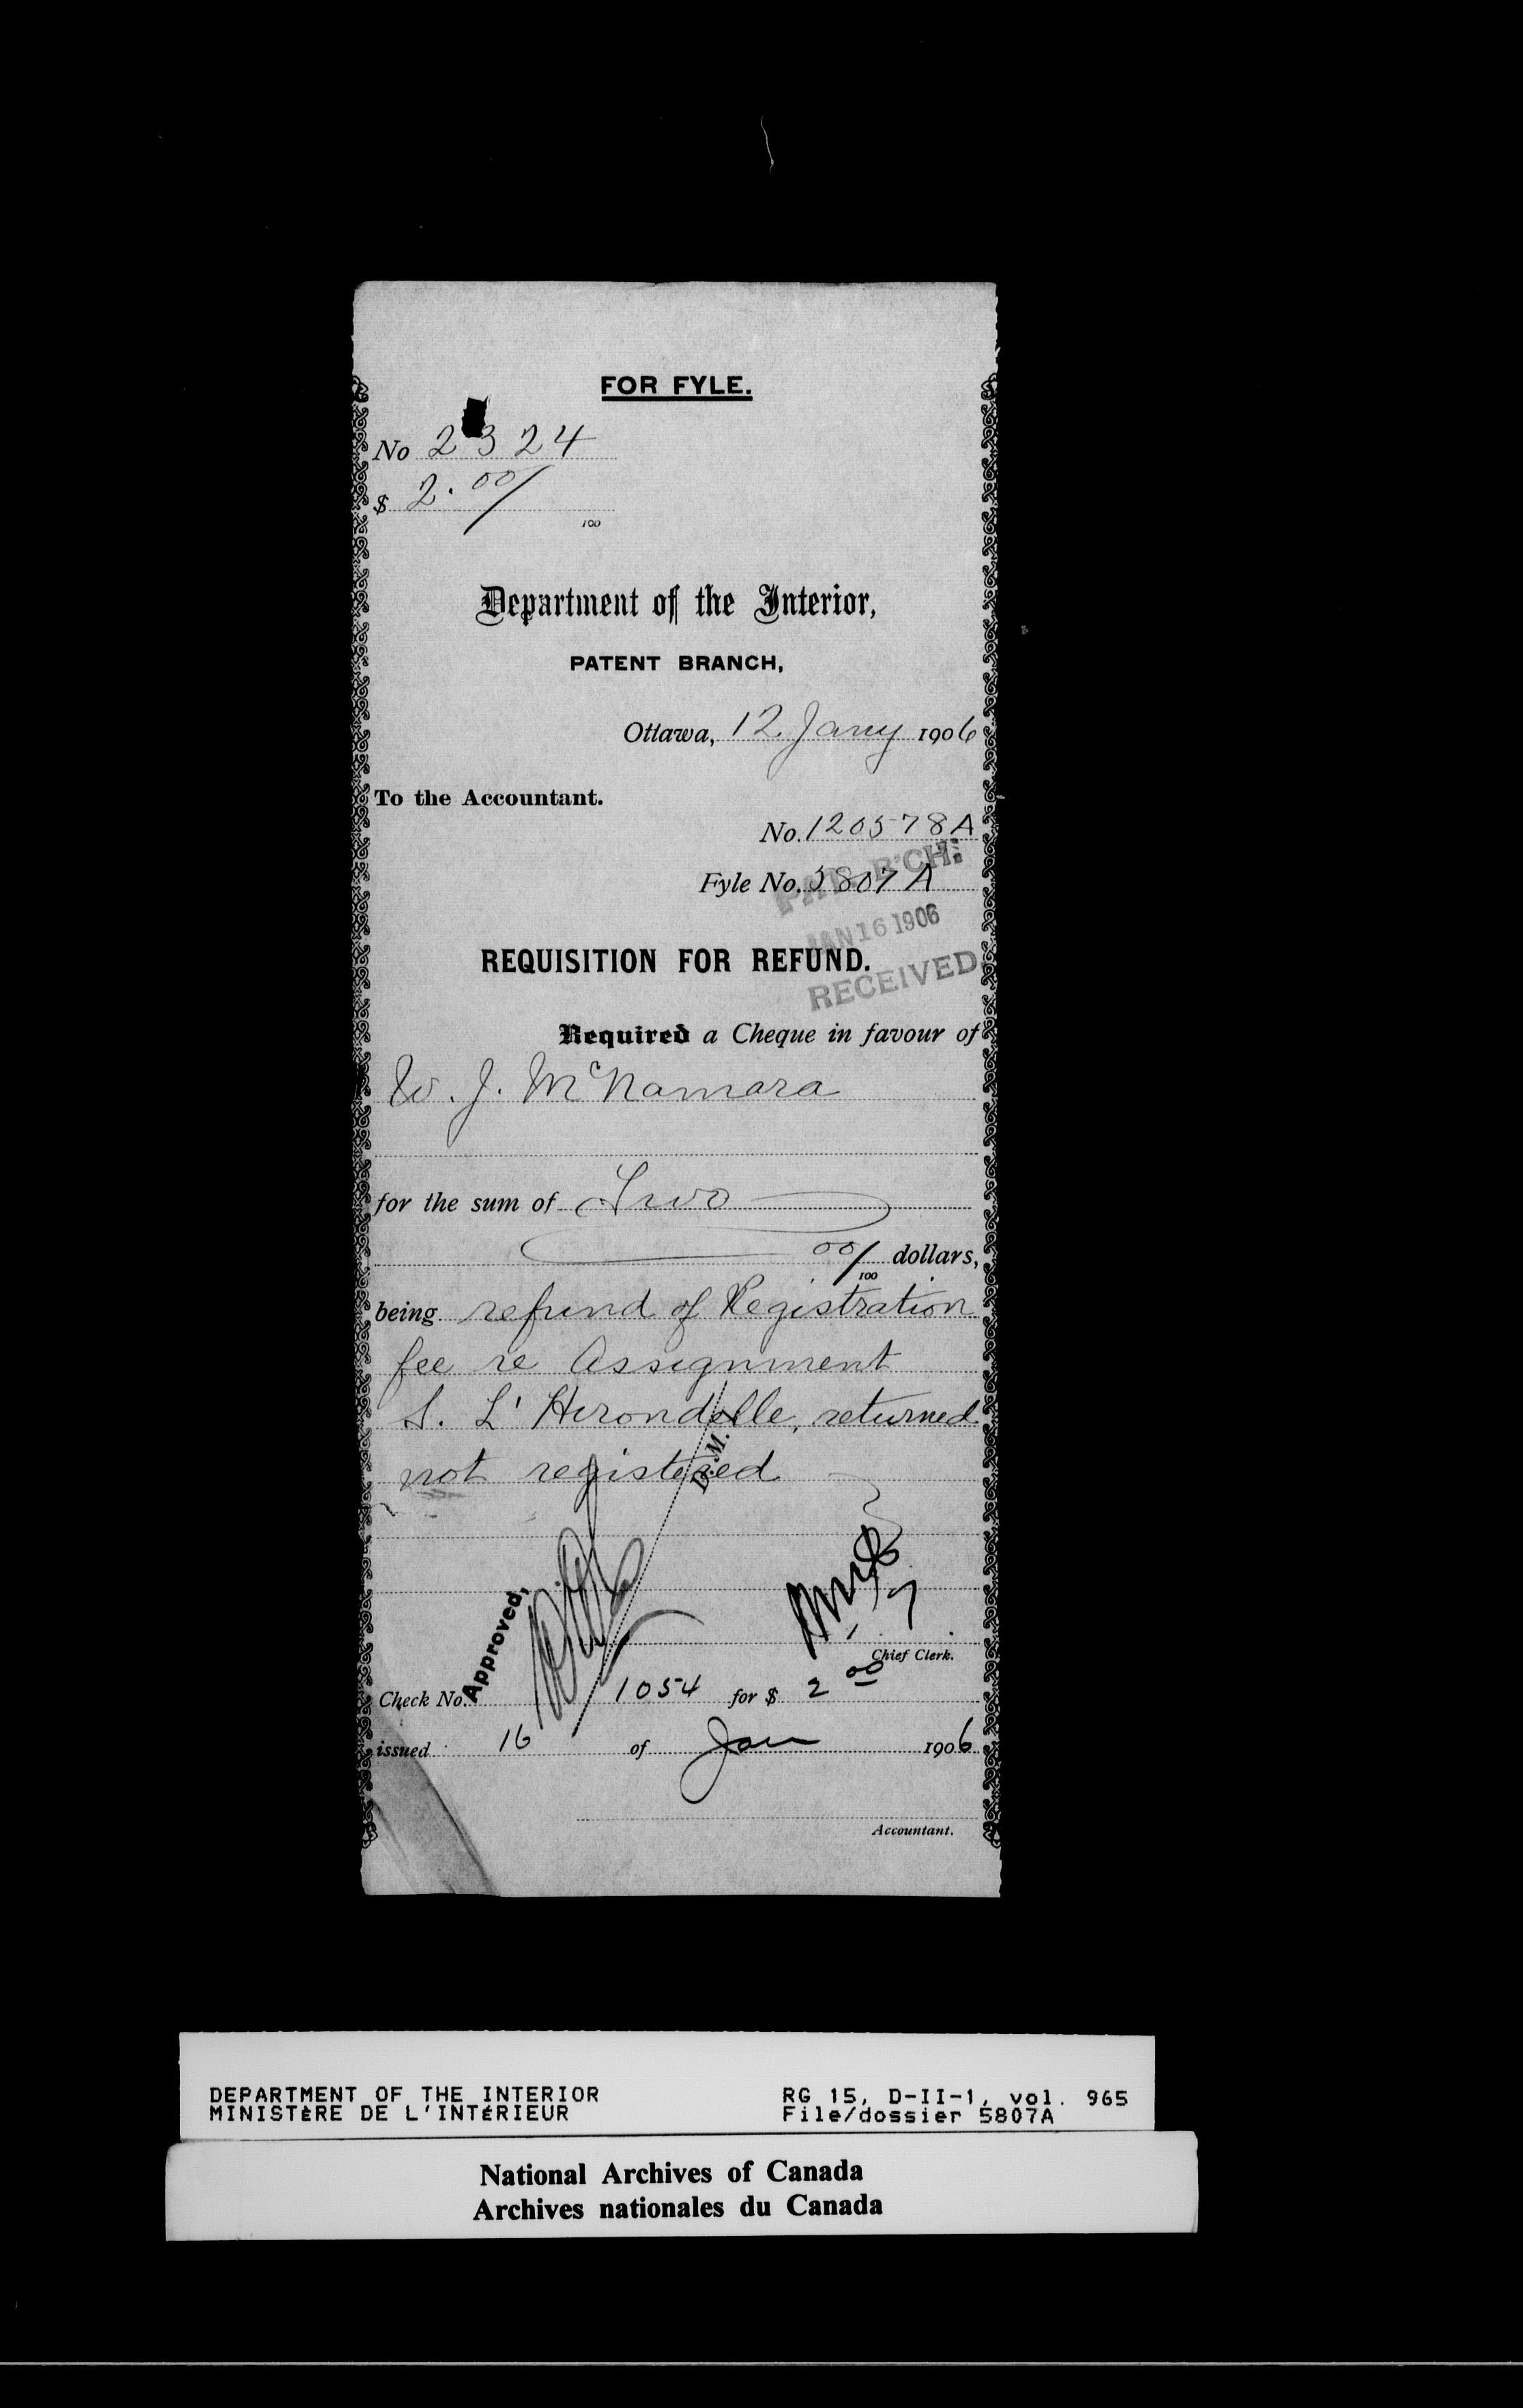 FOR FYLE.
No 2324
$ 2.00/
100
Department of the Interior,
PATENT BRANCH,
Ottawa, 12 Jany 1906
To the Accountant.
No. 120578A
Fyle No. 5807 A
PAT. B'CH.
JAN 16 1906
RECEIVED.
REQUISITION FOR REFUND.
Required a Cheque in favour of
W. J. McNamara
for the sum of Two
00/100 dollars,
being refund of Registration
fee re Assignment
S. L'Hirondelle, returned
not registered
D. M.
Approved,
Chief Clerk.
Check No. 1054 for $ 2 00
issued 16 of Jan 1906
Accountant.
DEPARTMENT OF THE INTERIOR RG 15, D-II-1, vol. 965
MINISTÈRE DE L'INTÉRIEUR File/dossier 5807A
National Archives of Canada
Archives nationales du Canada